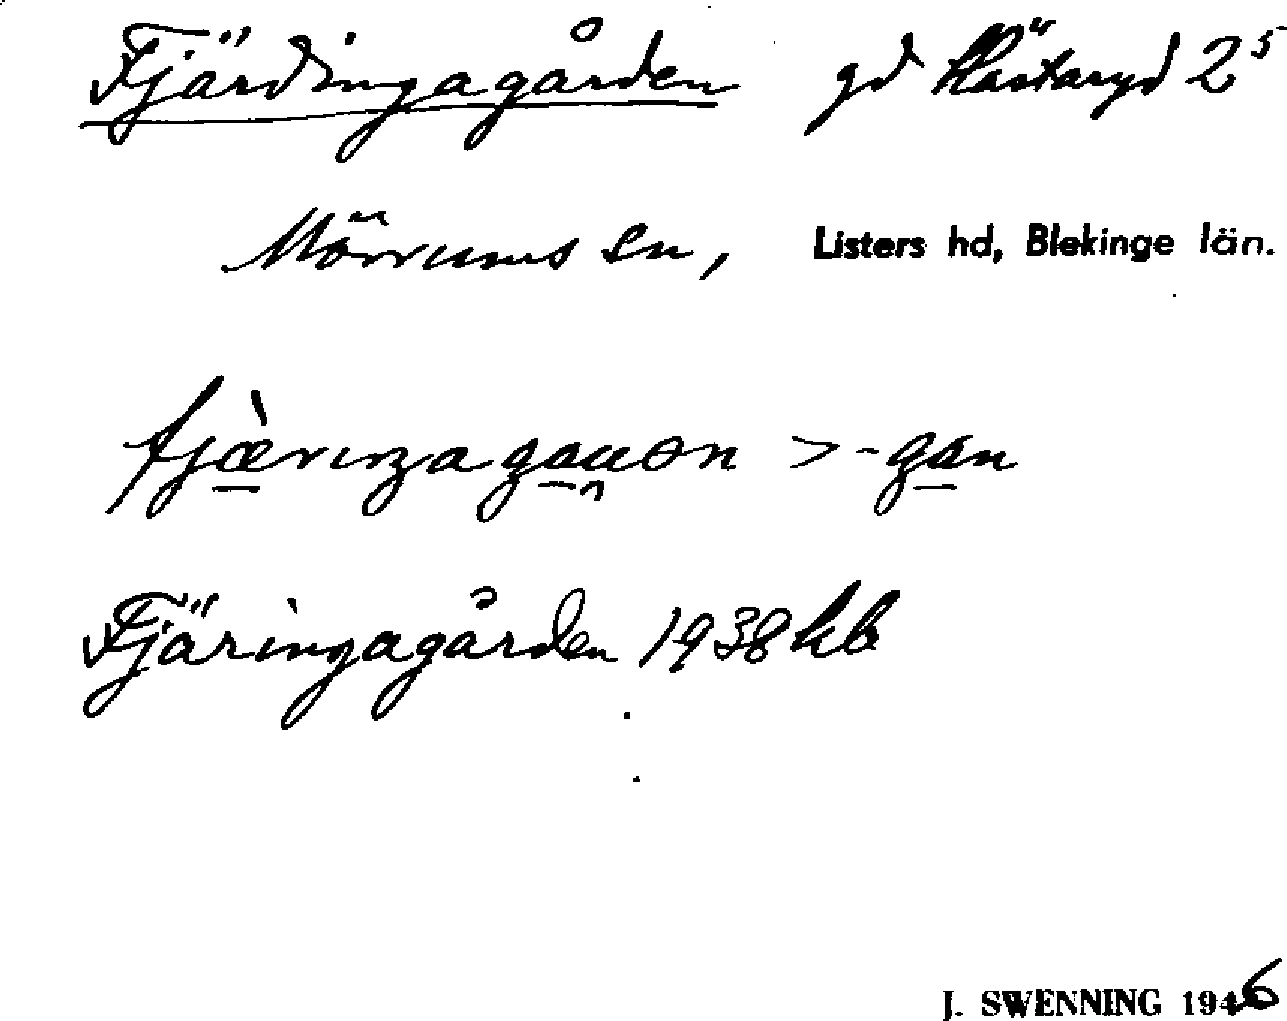 Fjärdingagården gd Hästaryd 2⁵
Mörrums sn, Listers hd, Blekinge län.
fjæ̀rıŋagauən > -gan
Fjäringagården 1938 kb
J. SWENNING 1946